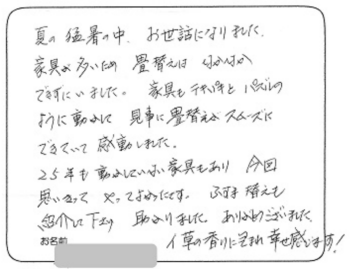 夏の猛暑の中、お世話になりました。
家具が多いため 畳替えは なかなか
できずにいました。 家具もテキパキと パズルの
ように動かして 見事に畳替えがスムーズに
できていて感動しました。
25年も動かしていない家具もあり 今回
思いきって やってよかったです。 ふすま替えも
紹介して下さり 助かりました。 ありがとうございました
お名前
イ草の香りに包まれ 幸せ感じます！